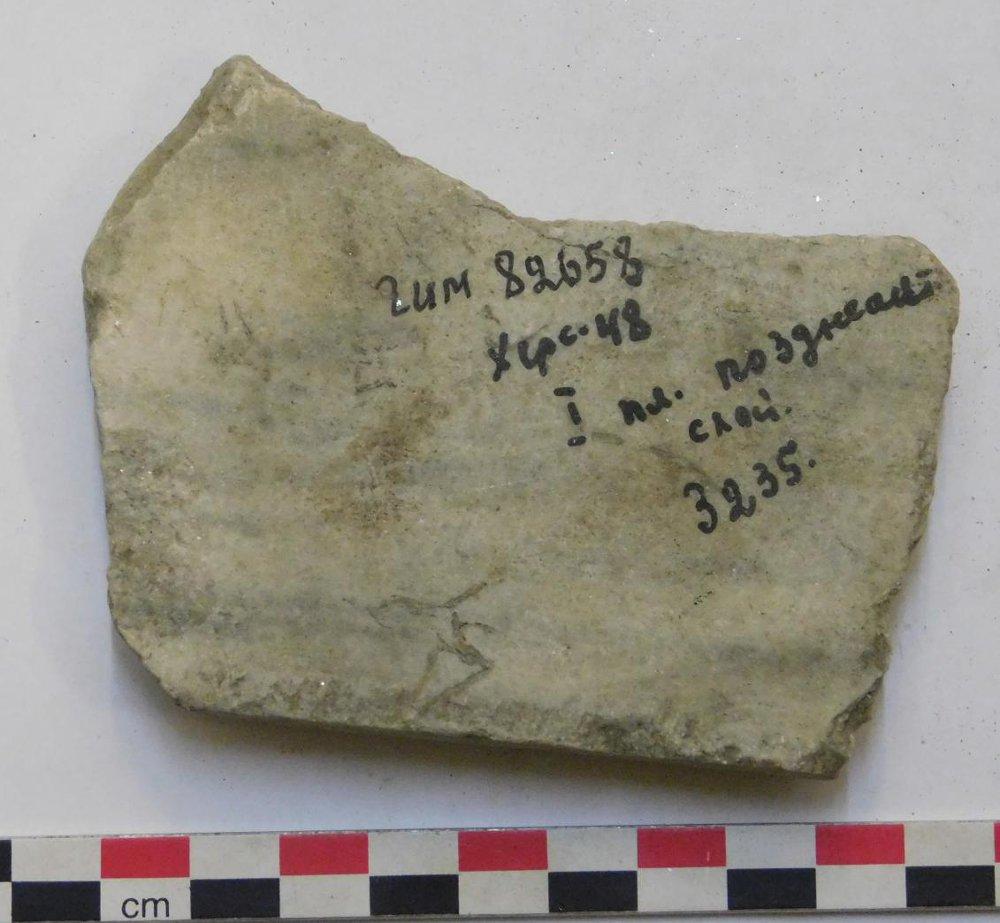 гим 82658
Херс-48
I пл. позднеант
слой.
3235.
cm